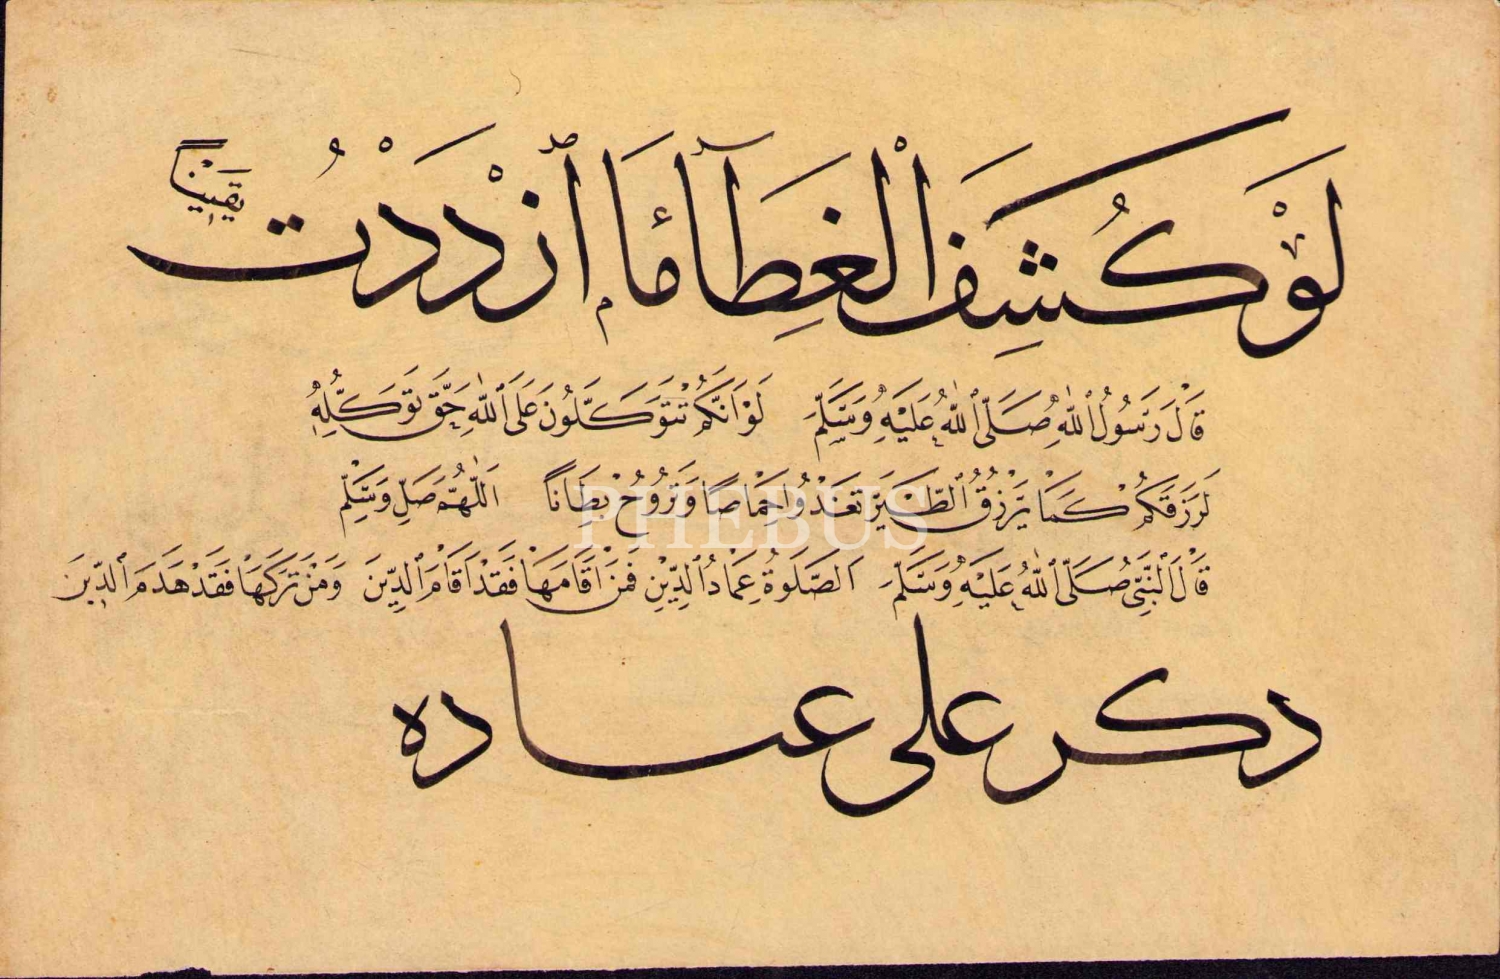 لَوْ كُشِفَ الْغِطَآءُ مَا ٱزْدَدْتُ يَقِينًا
قَالَ رَسُولُ ٱللّٰهِ صَلَّى ٱللّٰهُ عَلَيْهِ وَسَلَّمَ لَوْ اَنَّكُمْ تَتَوَكَّلُونَ عَلَى ٱللّٰهِ حَقَّ تَوَكُّلِهِ
لَرَزَقَكُمْ كَمَا يَرْزُقُ ٱلطَّيْرَ تَغْدُوا خِمَاصًا وَتَرُوحُ بِطَانًا اَللّٰهُمَّ صَلِّ وَسَلِّمْ
PHEBUS
قَالَ ٱلنَّبِيُّ صَلَّى ٱللّٰهُ عَلَيْهِ وَسَلَّمَ اَلصَّلَوةُ عِمَادُ ٱلدِّينِ فَمَنْ اَقَامَهَا فَقَدْ اَقَامَ ٱلدِّينَ وَمَنْ تَرَكَهَا فَقَدْ هَدَمَ ٱلدِّينَ
دكر على عباده